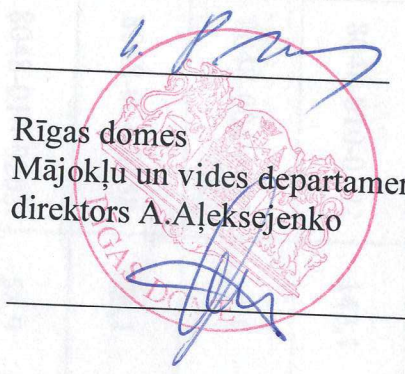 Rīgas domes
Mājokļu un vides departamen
direktors A.Aļeksejenko
RĪGAS DOME